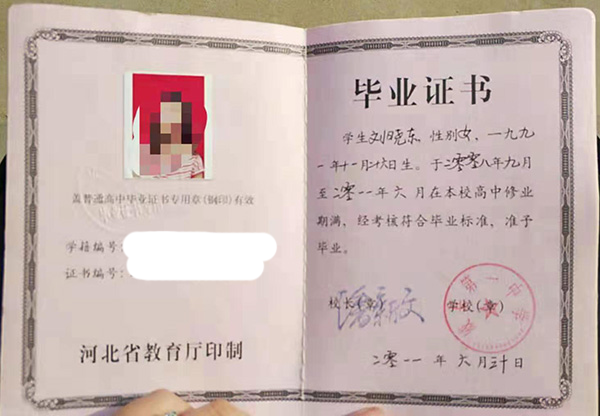 盖普通高中毕业证书专用章(钢印)有效
学籍编号:
证书编号:
河北省教育厅印制
毕业证书
学生刘晓东,性别女,一九九
一年十一月二十六日生。于二〇〇八年九月
至二〇一一年六月在本校高中修业
期满,经考核符合毕业标准,准予
毕业。
校长(章)
学校(章)
第一中学
二〇一一年六月三十日